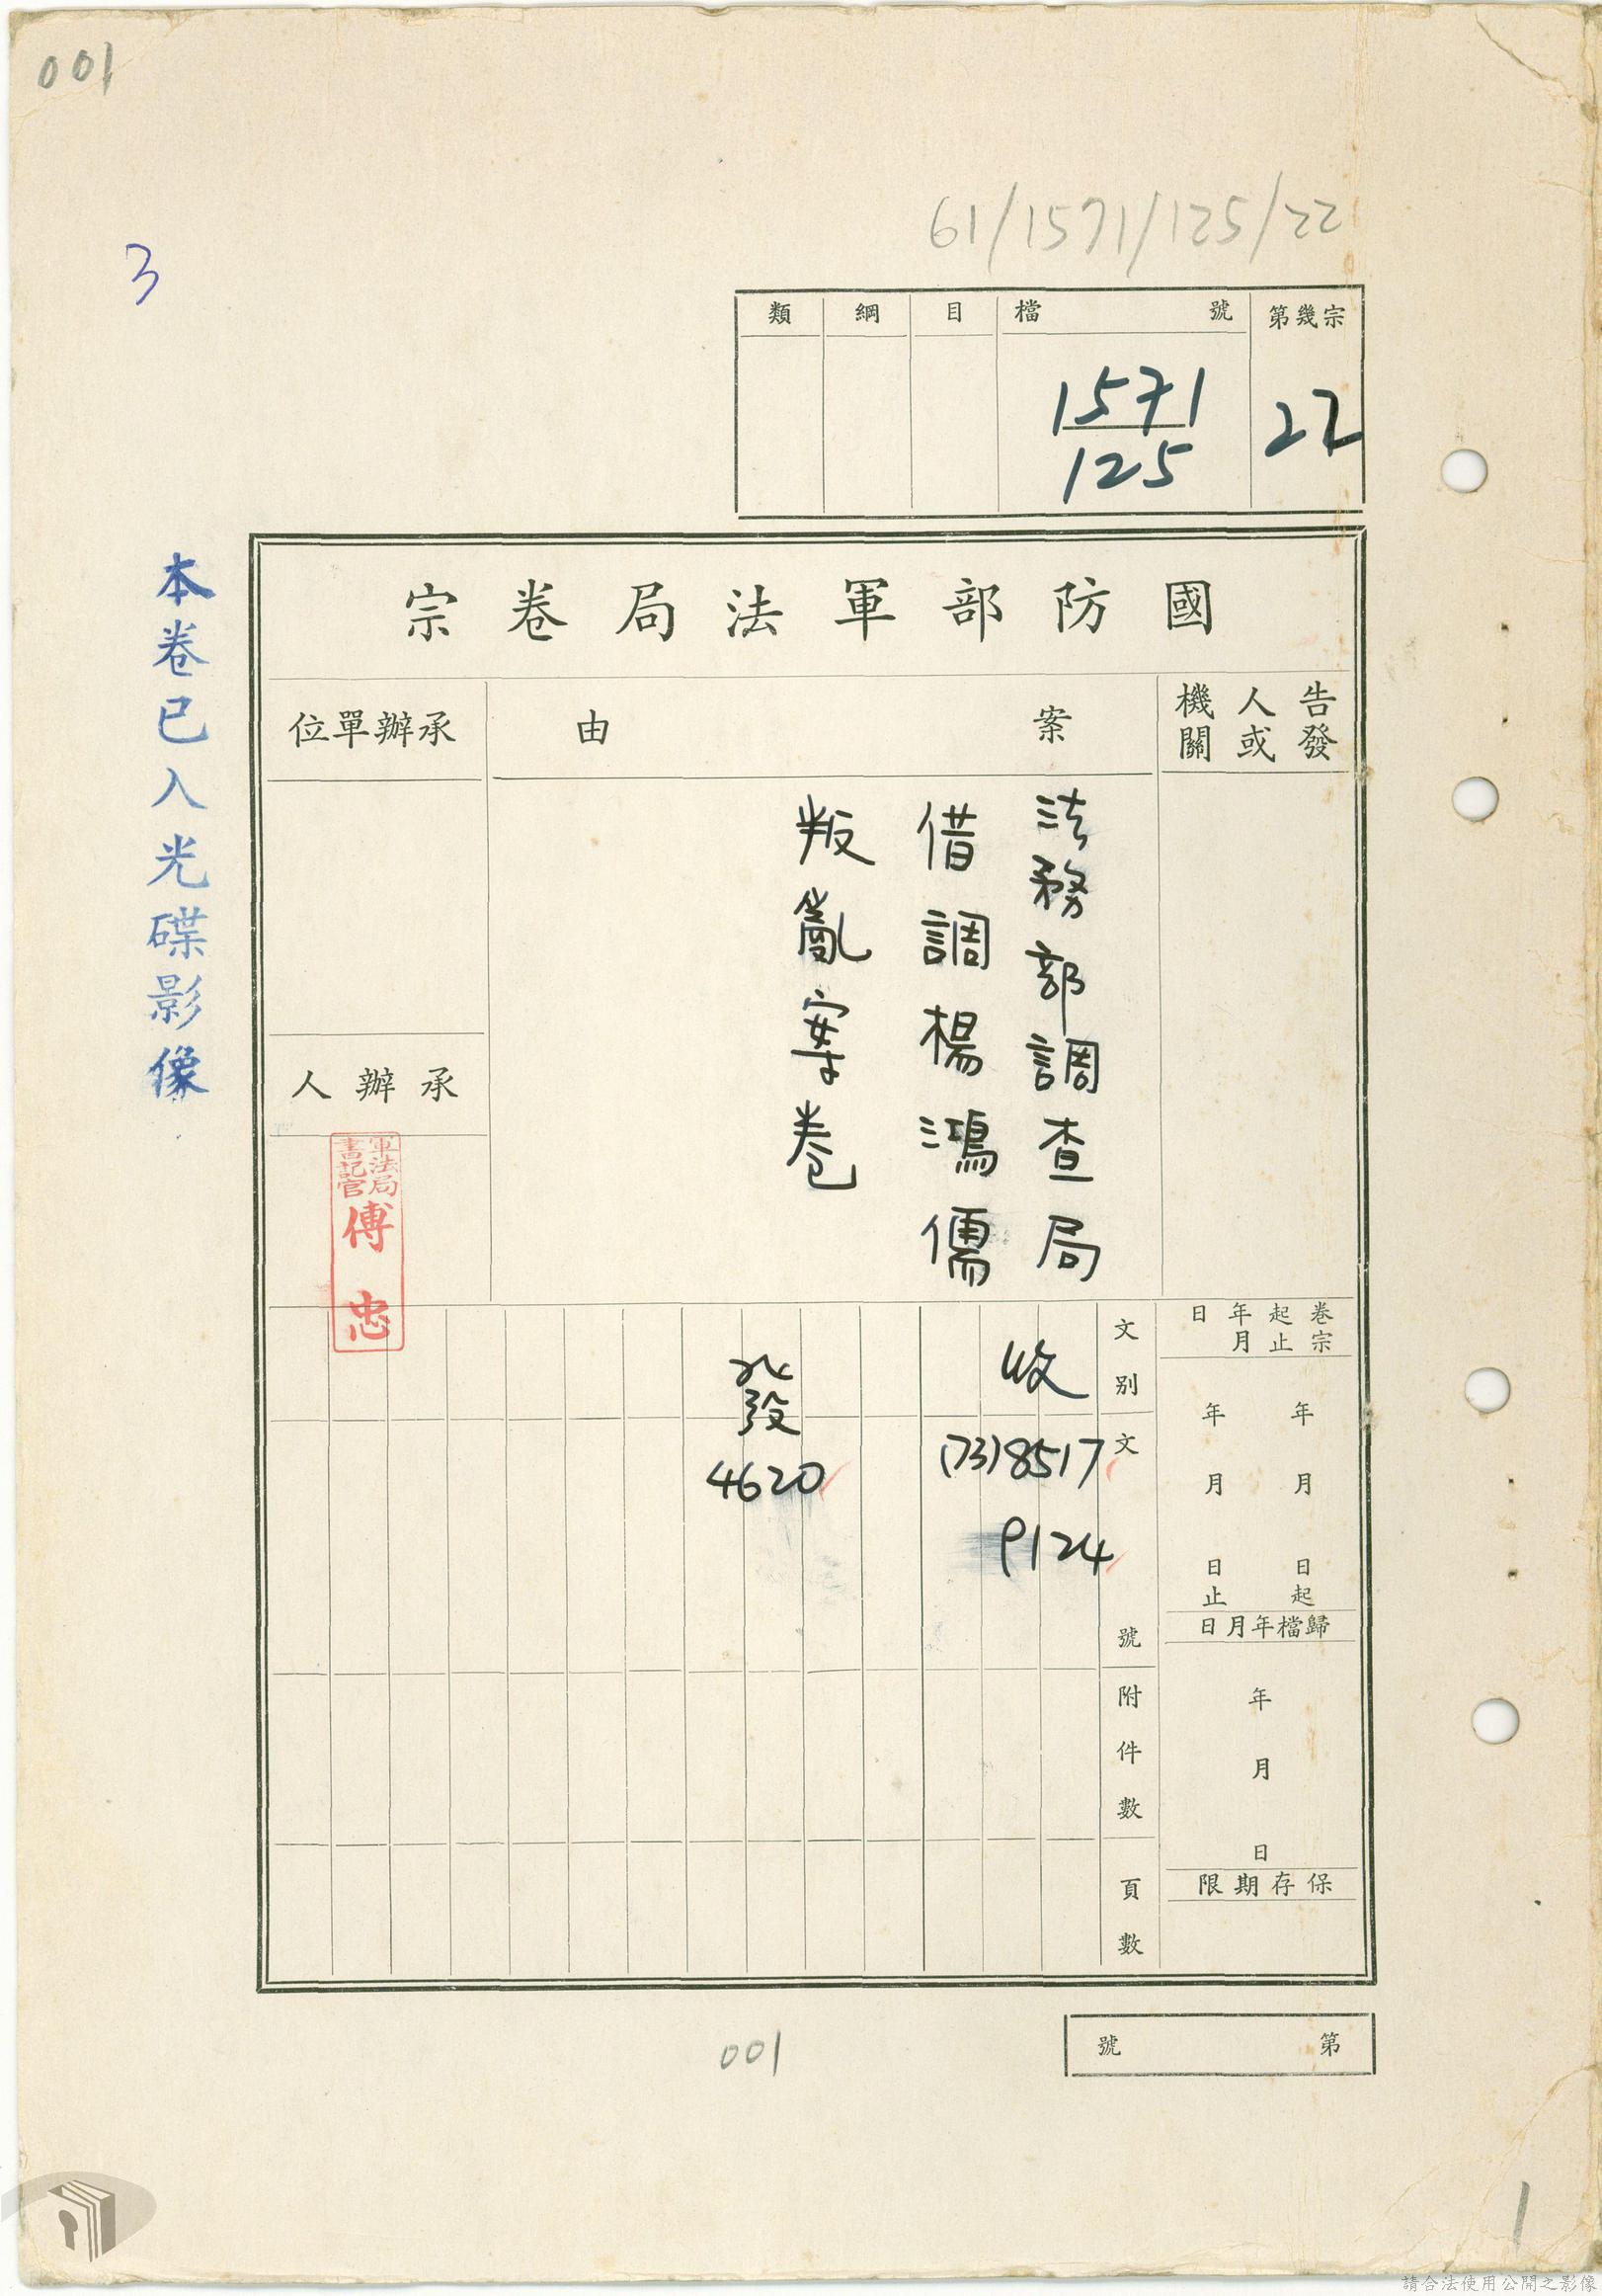 001
61/1571/125/22
3
類 綱 目 檔號 第幾宗
1571
125
22
國防部軍法局卷宗
告發人或機關
案由
承辦單位
法務部調查局
借調楊鴻儒
叛亂案卷
承辦人
軍法局
書記官
傅忠
本卷已入光碟影像
卷宗起止年月日
年 月 日起
年 月 日止
歸檔年月日
年 月 日
保存期限
文別
收
發
文號
(73)8517
9124
4620
附件數
頁數
第 號
001
1
請合法使用公開之影像